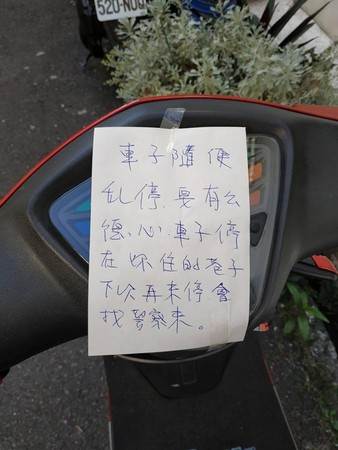 車子隨便
乱停.要有公
德心.車子停
在妳住的巷子
下次再来停會
找警察來。